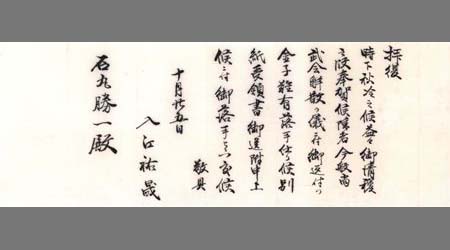 拝復
時下秋冷之候益々御清穆
之段奉賀候陳者今般尚
武会解散の儀ニ付御送付の
金子難有落手仕り候別
紙受領書御送附申上
候ニ付御落手被下度候
敬具
十月廿五日
入江祐晟
石丸勝一殿